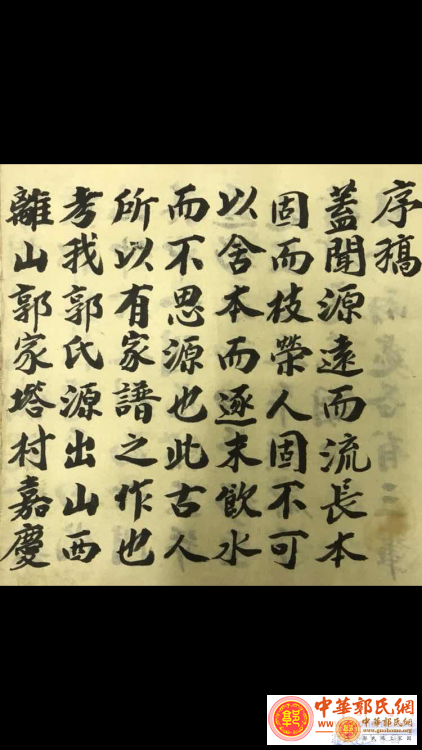 序稿
蓋聞源遠而流長本
固而枝榮人固不可
以舍本而逐末飲水
而不思源也此古人
所以有家譜之作也
考我郭氏源出山西
離山郭家塔村嘉慶
中華郭氏網
www.guohome.org